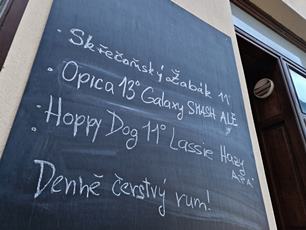 · Skřečoňský Žabák 11°
· Opica 13° Galaxy SMASH ALE
· Hoppy Dog 11° Lassie Hazy
Denně čerstvý rum!